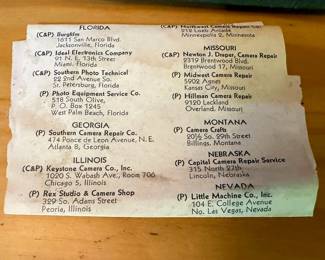 FLORIDA
(C&P) Burglim
1611 San Marco Blvd.
Jacksonville, Florida
(C&P) Ideal Electronics Company
91 N. E. 13th Street
Miami, Florida
(C&P) Southern Photo Technical
22 2nd Avenue So.
St. Petersburg, Florida
(P) Photo Equipment Service Co.
518 South Olive,
P. O. Box 1245
West Palm Beach, Florida
GEORGIA
(P) Southern Camera Repair Co.
474 Ponce de Leon Avenue, N. E.
Atlanta 8, Georgia
ILLINOIS
(C&P) Keystone Camera Co., Inc.
1020 S. Wabash Ave., Room 706
Chicago 5, Illinois
(P) Rex Studio & Camera Shop
329 So. Adams Street
Peoria, Illinois
(C&P) Northwest Camera Repair Co.
212 Loeb Arcade
Minneapolis 2, Minnesota
MISSOURI
(C&P) Newton J. Draper, Camera Repair
2319 Brentwood Blvd.
Brentwood 17, Missouri
(P) Midwest Camera Repair
5902 Agnes
Kansas City, Missouri
(P) Hillman Camera Repair
9120 Lackland
Overland, Missouri
MONTANA
(P) Camera Crafts
20½ So. 29th Street
Billings, Montana
NEBRASKA
(P) Capital Camera Repair Service
315 North 27th
Lincoln, Nebraska
NEVADA
(P) Little Machine Co., Inc.
104 E. College Avenue
No. Las Vegas, Nevada